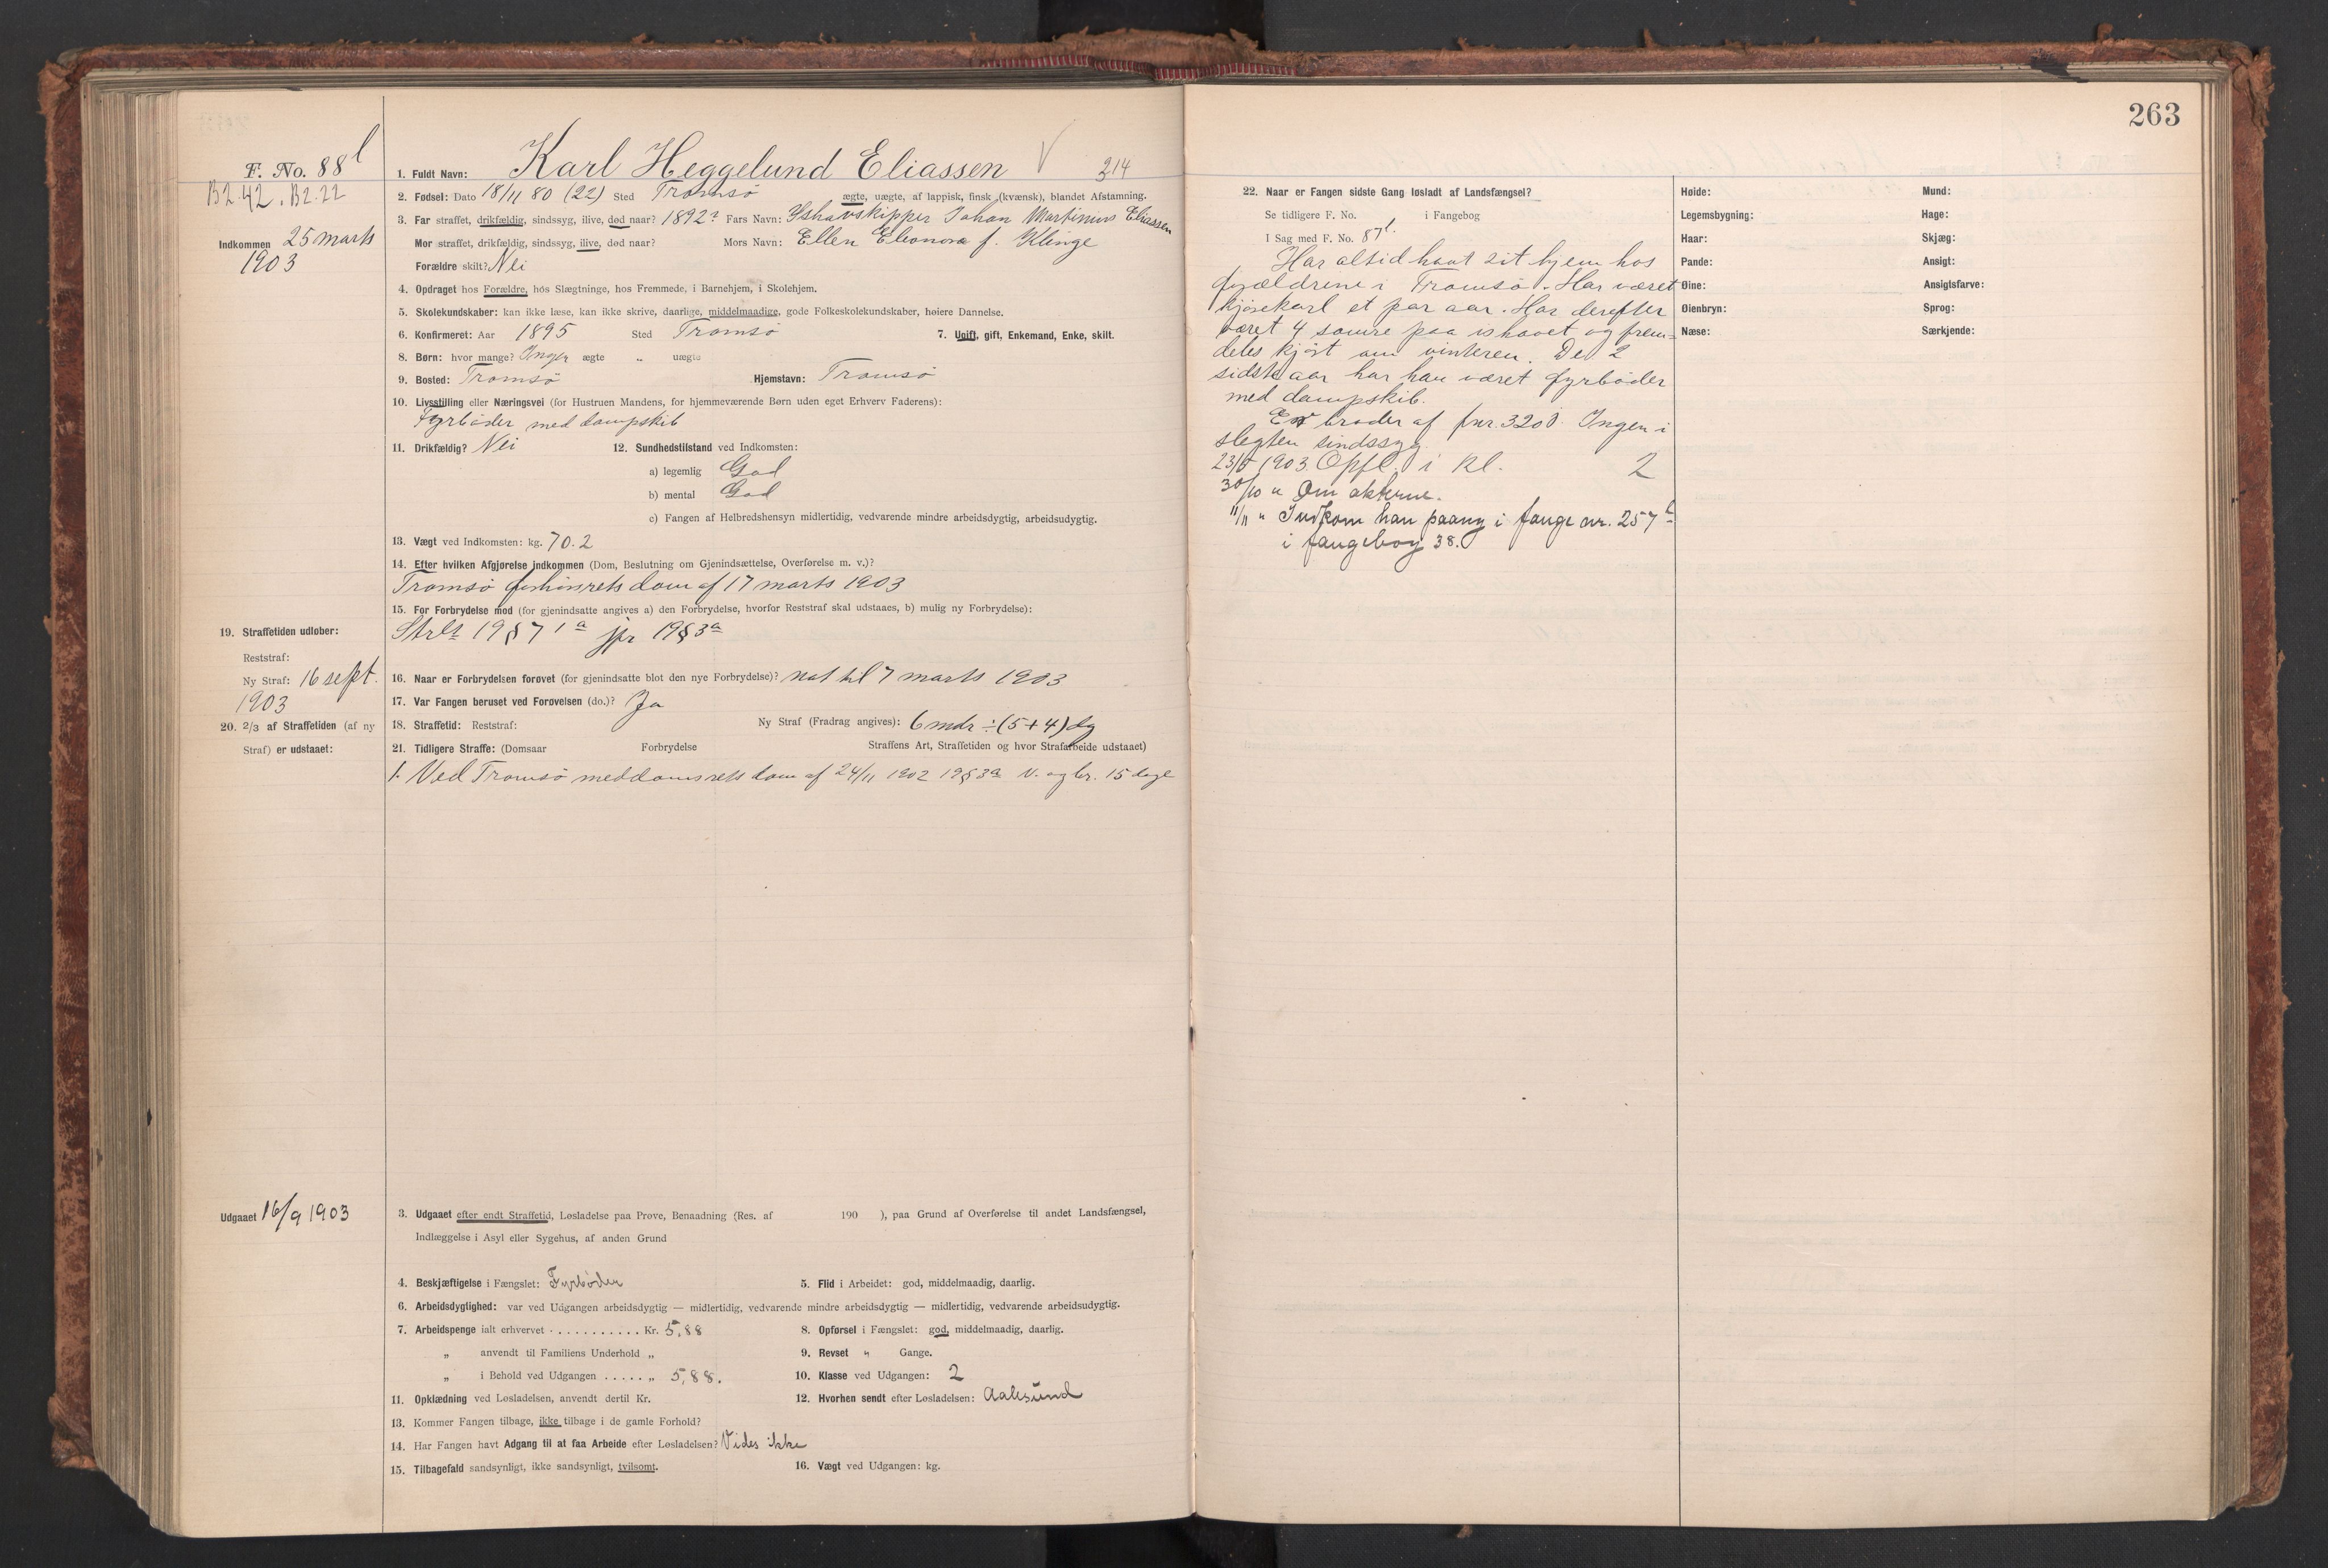 263
F. No. 88 l
B2.42. B2.22
Indkommen 25 marts
1903
1. Fuldt Navn: Karl Heggelund Eliassen V 214
2. Fødsel: Dato 18/11 80 (22) Sted Tromsø ægte, uægte, af lappisk, finsk (kvænsk), blandet Afstamning.
3. Far straffet, drikfældig, sindssyg, ilive, død naar? 1892? Fars Navn: Ishavskipper Johan Martinius Eliassen
Mor straffet, drikfældig, sindssyg, ilive, død naar? Mors Navn: Ellen Eleonora f. Klinge
Forældre skilt? Nei
4. Opdraget hos Forældre, hos Slægtninge, hos Fremmede, i Barnehjem, i Skolehjem.
5. Skolekundskaber: kan ikke læse, kan ikke skrive, daarlige, middelmaadige, gode Folkeskolekundskaber, høiere Dannelse.
6. Konfirmeret: Aar 1895 Sted Tromsø 7. Ugift, gift, Enkemand, Enke, skilt.
8. Børn: hvor mange? Ingen ægte „ uægte
9. Bosted: Tromsø Hjemstavn: Tromsø
10. Livsstilling eller Næringsvei (for Hustruen Mandens, for hjemmeværende Børn uden eget Erhverv Faderens):
Fyrbøder med dampskib
11. Drikfældig? Nei 12. Sundhedstilstand ved Indkomsten:
a) legemlig God
b) mental God
c) Fangen af Helbredshensyn midlertidig, vedvarende mindre arbeidsdygtig, arbeidsudygtig.
13. Vægt ved Indkomsten: kg. 70.2
14. Efter hvilken Afgjørelse indkommen (Dom, Beslutning om Gjenindsættelse, Overførelse m. v.)?
Tromsø forhørsrets dom af 17 marts 1903
15. For Forbrydelse mod (for gjenindsatte angives a) den Forbrydelse, hvorfor Reststraf skal udstaaes, b) mulig ny Forbrydelse):
Strl 19 § 7 1 a jfr 19 § 3 a
19. Straffetiden udløber:
Reststraf:
Ny Straf: 16 sept.
1903
16. Naar er Forbrydelsen forøvet (for gjenindsatte blot den nye Forbrydelse)? nat til 7 marts 1903
17. Var Fangen beruset ved Forøvelsen (do.)? Ja
20. 2/3 af Straffetiden (af ny
Straf) er udstaaet:
18. Straffetid: Reststraf: Ny Straf (Fradrag angives): 6 mdr ÷ (5+4) dg
21. Tidligere Straffe: (Domsaar Forbrydelse Straffens Art, Straffetiden og hvor Strafarbeide udstaaet)
1. Ved Tromsø meddomsrets dom af 24/11 1902 19 § 3 a v. og br. 15 dage
Udgaaet 16/9 1903
3. Udgaaet efter endt Straffetid, Løsladelse paa Prøve, Benaadning (Res. af 190 ), paa Grund af Overførelse til andet Landsfængsel,
Indlæggelse i Asyl eller Sygehus, af anden Grund
4. Beskjæftigelse i Fængslet: Fyrbøder 5. Flid i Arbeidet: god, middelmaadig, daarlig.
6. Arbeidsdygtighed: var ved Udgangen arbeidsdygtig — midlertidig, vedvarende mindre arbeidsdygtig — midlertidig, vedvarende arbeidsudygtig.
7. Arbeidspenge ialt erhvervet . . . . . . . . . . . Kr. 5,88 8. Opførsel i Fængslet: god, middelmaadig, daarlig.
„ anvendt til Familiens Underhold „ 9. Revset „ Gange.
„ i Behold ved Udgangen . . . . . „ 5,88. 10. Klasse ved Udgangen: 2
11. Opklædning ved Løsladelsen, anvendt dertil Kr. 12. Hvorhen sendt efter Løsladelsen: Aalesund
13. Kommer Fangen tilbage, ikke tilbage i de gamle Forhold?
14. Har Fangen havt Adgang til at faa Arbeide efter Løsladelsen? Vides ikke
15. Tilbagefald sandsynligt, ikke sandsynligt, tvilsomt. 16. Vægt ved Udgangen: kg.
22. Naar er Fangen sidste Gang løsladt af Landsfængsel?
Se tidligere F. No. i Fangebog
I Sag med F. No. 87 l.
Har altid havt sit hjem hos
forældrene i Tromsø. Har været
kjørekarl et par aar. Har derefter
været 4 somre paa ishavet og frem=
deles kjørt om vinteren. De 2
sidste aar har han været fyrbøder
med dampskib.
Er broder af fnr. 320 Ingen i
slegten sindssyg.
23/5 1903. Opfl. i kl. 2
30/10 „ Om akterne.
11/11 „ Indkom han paany i fange nr. 257
i fangebog 38.
Høide: Mund:
Legemsbygning: Hage:
Haar: Skjæg:
Pande: Ansigt:
Øine: Ansigtsfarve:
Øienbryn: Sprog:
Næse: Særkjende: